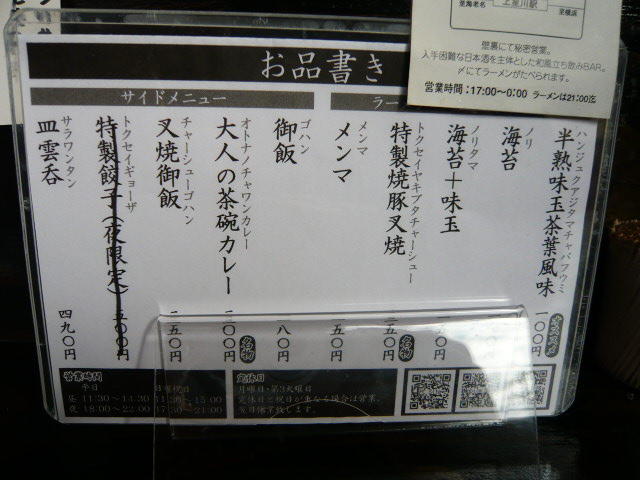 至海老名
上星川駅
至横浜
壁裏にて秘密営業。
入手困難な日本酒を主体とした和風立ち飲みBAR。
〆にてラーメンがたべられます。
営業時間：17:00～0:00 ラーメンは21:00迄
お品書き
ラー
ハンジュクアジタマチャバフウミ
半熟味玉茶葉風味
一〇〇円
ノリ
海苔
ノリタマ
海苔＋味玉
トクセイヤキブタチャーシュー
特製焼豚叉焼
名物
メンマ
メンマ
サイドメニュー
ゴハン
御飯
オトナノチャワンカレー
大人の茶碗カレー
名物
チャーシューゴハン
叉焼御飯
トクセイギョーザ
特製餃子(夜限定)
サラワンタン
皿雲呑
四九〇円
営業時間
平日
日曜祝日
昼 11:30～14:30
11:30～15:00
夜 18:00～22:00
17:30～21:00
定休日
月曜日・第3火曜日
定休日と祝日が重なる場合は営業、
翌日休業致します。